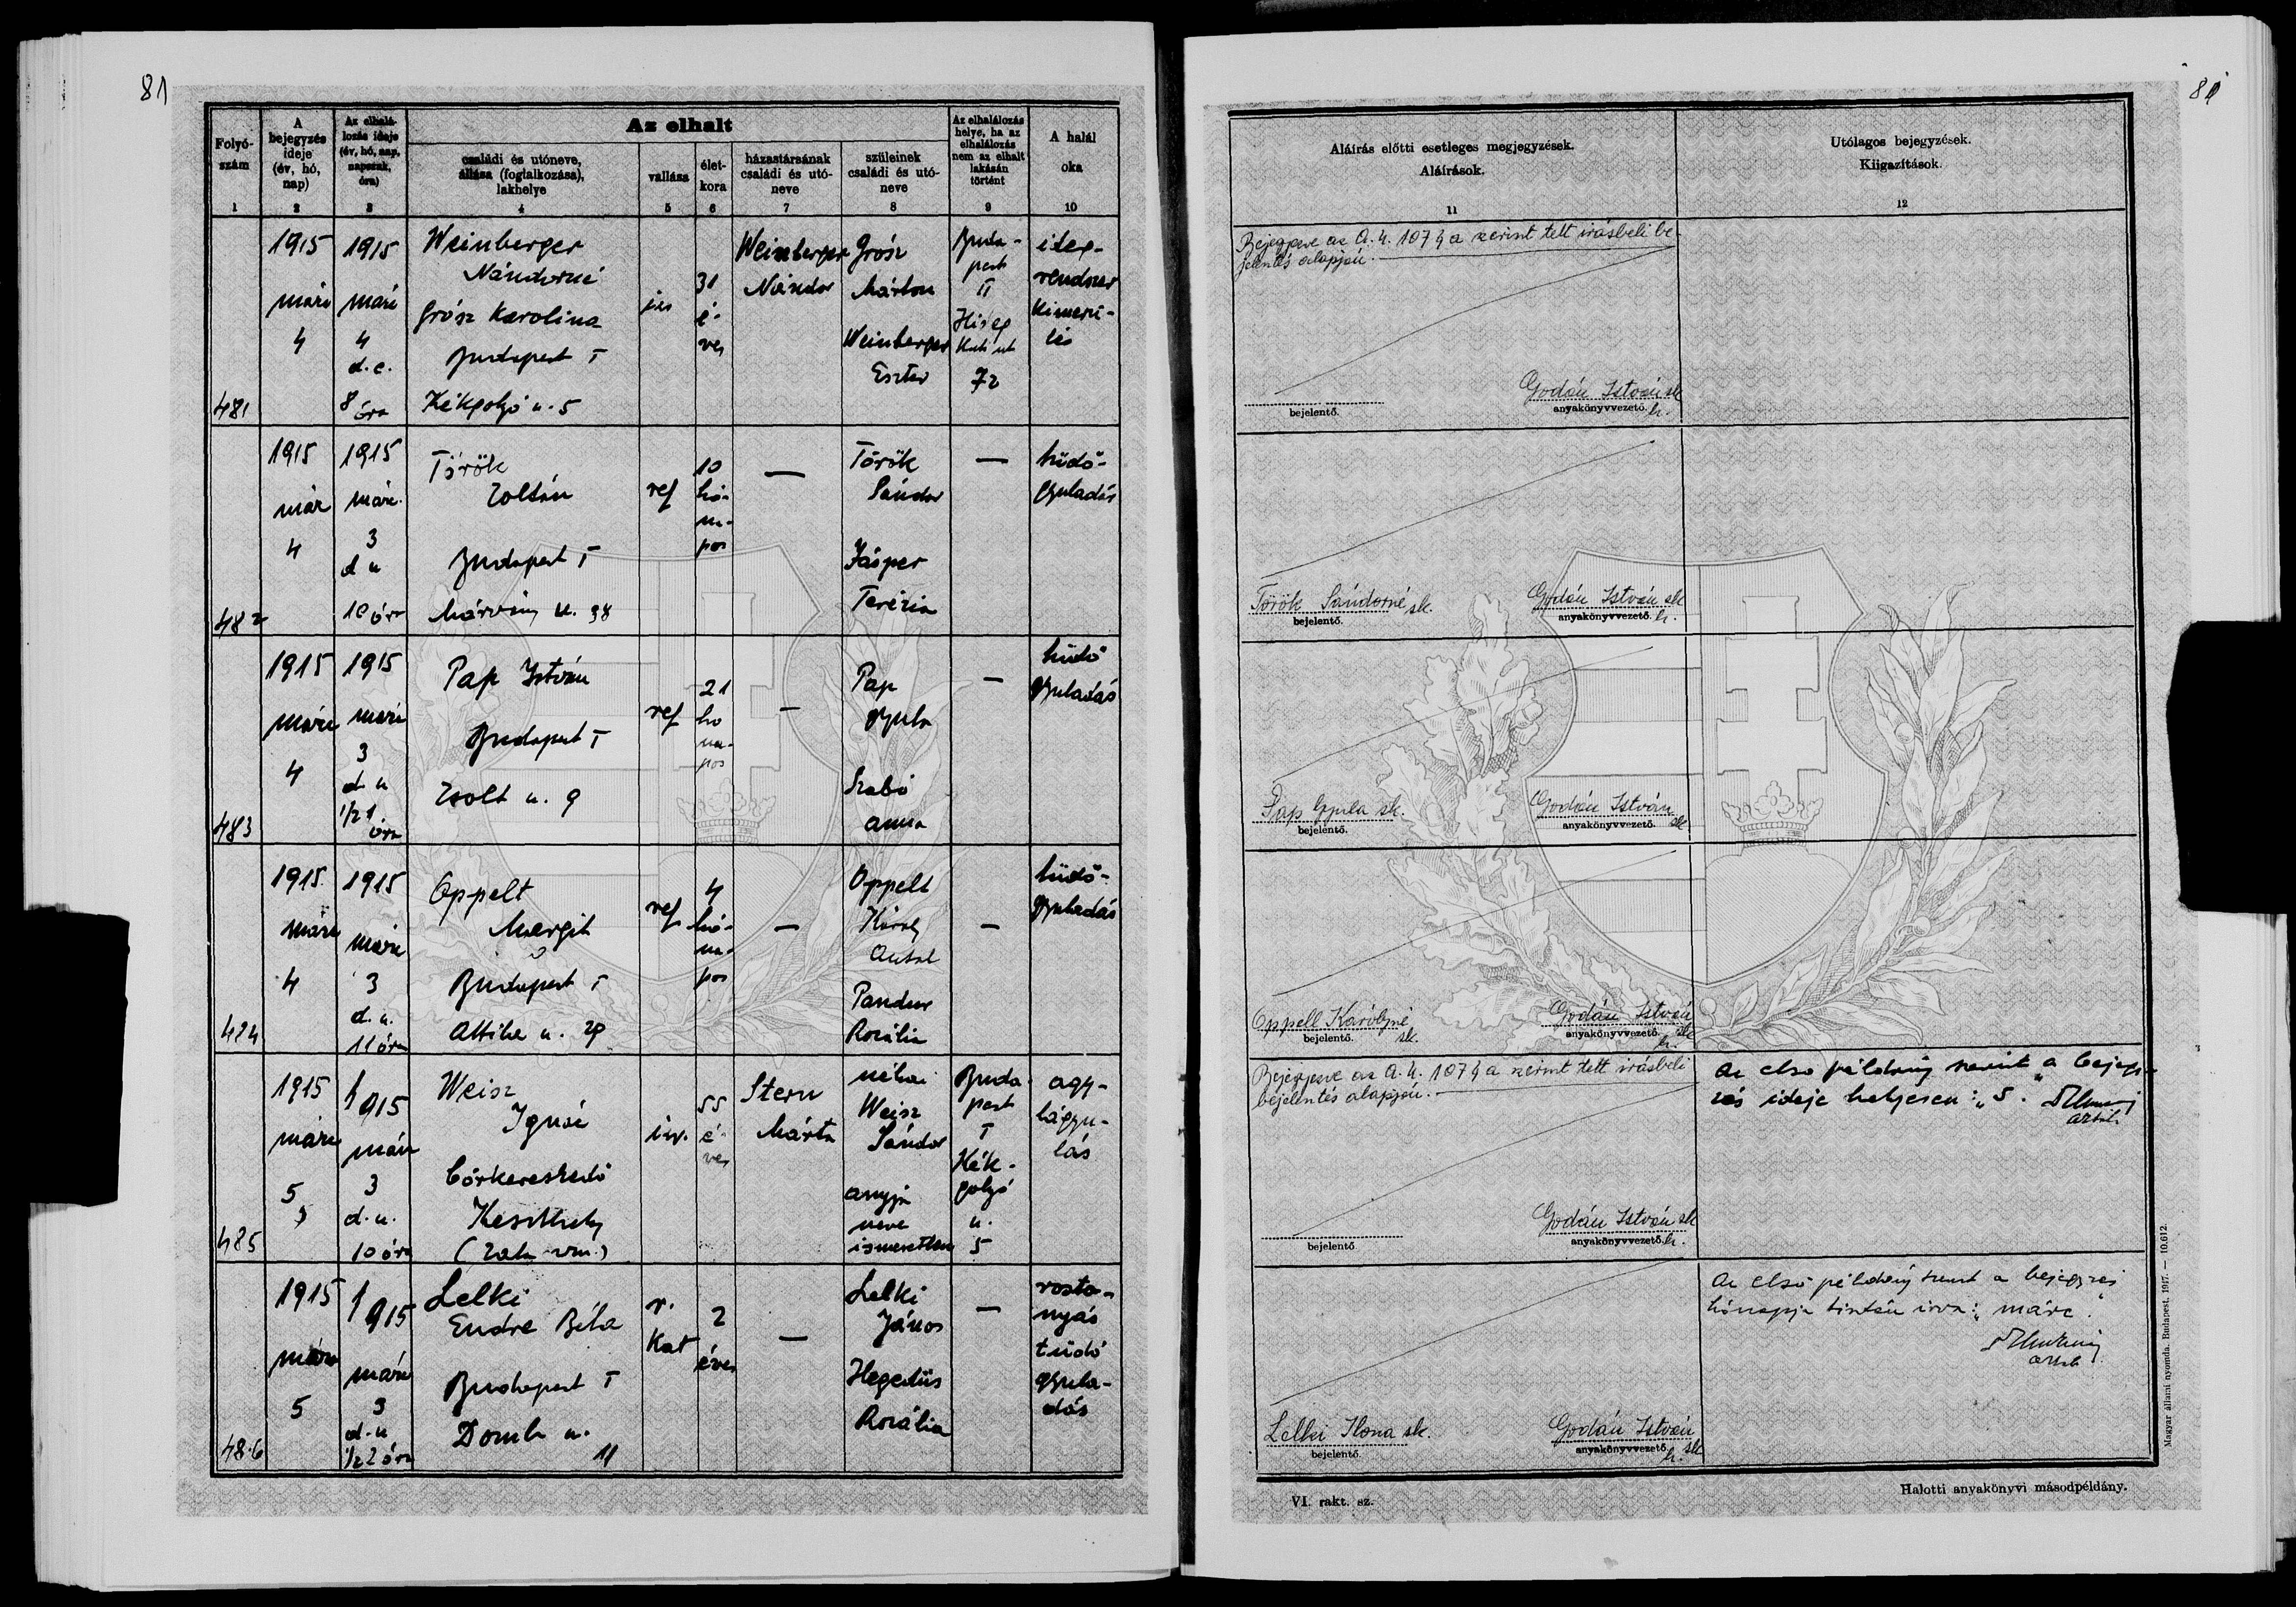 81
Folyó-
szám
A
bejegyzés
ideje
(év, hó,
nap)
Az elhalá-
lozás ideje
(év, hó, nap,
napszak,
óra)
Az elhalt
családi és utóneve,
állása (foglalkozása),
lakhelye
vallása
élet-
kora
házastársának
családi és utó-
neve
szüleinek
családi és utó-
neve
Az elhalálozás
helye, ha az
elhalálozás
nem az elhalt
lakásán
történt
A halál
oka
1 2 3 4 5 6 7 8 9 10
481
1915
márc
4
1915
márc
4
d.e.
8 óra
Weinberger
Nándorné
Grósz Karolina
Budapest I
Kékgolyó u. 5
31
é-
ves
Weinberger
Nándor
Grósz
Márton
Weinberger
Eszter
Buda-
pest
II
kuti ut
72
ideg-
rendszer
kimerü-
lés
482
1915
már
4
1915
márc.
3
d u
10 óra
Török
Zoltán
Budapest I
Márvány u. 38
ref
10
hó-
na-
pos
—
Török
Sándor
Jásper
Terézia
—
tüdő-
gyuladás
483
1915
márc
4
1915
márc
3
d. u
1/2 1
óra
Pap István
Budapest I
Zsolt u. 9
ref
21
ho
na-
pos
—
Pap
Gyula
Szabó
Anna
—
tüdő
gyuladás
484
1915.
márc
4
1915
márc
3
d. u.
11 óra
Oppelt
Margit
Budapest I
Attila u. 29
ref
4
hó-
na-
pos
—
Oppelt
Károly
Antal
Pandur
Rozália
—
tüdő-
gyuladás
485
1915
márc
5
1915
márc
3
d. u.
10 óra
Weisz
Ignác
bőrkereskedő
Keszthely
(Zala vm.)
izr.
55
é-
ves
Stern
Márta
néhai
Weisz
Sándor
anyja
neve
ismeretlen
Buda-
pest
I
Kék-
golyó
u.
5
agy-
lágyu-
lás
486
1915
márc
5
1915
márc
3
d. u
1/2 2 óra
Lelki
Endre Béla
Budapest I
Domb u.
11
r.
kat
2
éves
—
Lelki
János
Hegedüs
Rozália
—
rosta-
nyás
tüdő
gyula-
dás
81
Aláírás előtti esetleges megjegyzések.
Aláírások.
11
Utólagos bejegyzések.
Kiigazítások.
12
Bejegyezve az A. u. 107 § a szerint tett irásbeli be-
jelentés alapján.
bejelentő.
Godán István sk
anyakönyvvezető. h.
Török Sándorné sk.
bejelentő.
Godán István sk
anyakönyvvezető. h.
Pap Gyula sk.
bejelentő.
Godán István
anyakönyvvezető. sk
Oppelt Károlyné
bejelentő. sk.
Godán István
anyakönyvvezető. sk
h.
Bejegyezve az A. u. 107 § a szerint tett irásbeli
bejelentés alapján.
bejelentő
Godán István sk
anyakönyvvezető. h.
Az első példány szerint a bejegy-
zés ideje helyesen: „5.
Lelki Ilona sk.
bejelentő.
Godán István
anyakönyvvezető. sk
h.
Az első példány szerint a bejegyzés
hónapja tintán irva: „márc."
VI. rakt. sz.
Halotti anyakönyvi másodpéldány.
Magyar állami nyomda. Budapest, 1947. — 10.612